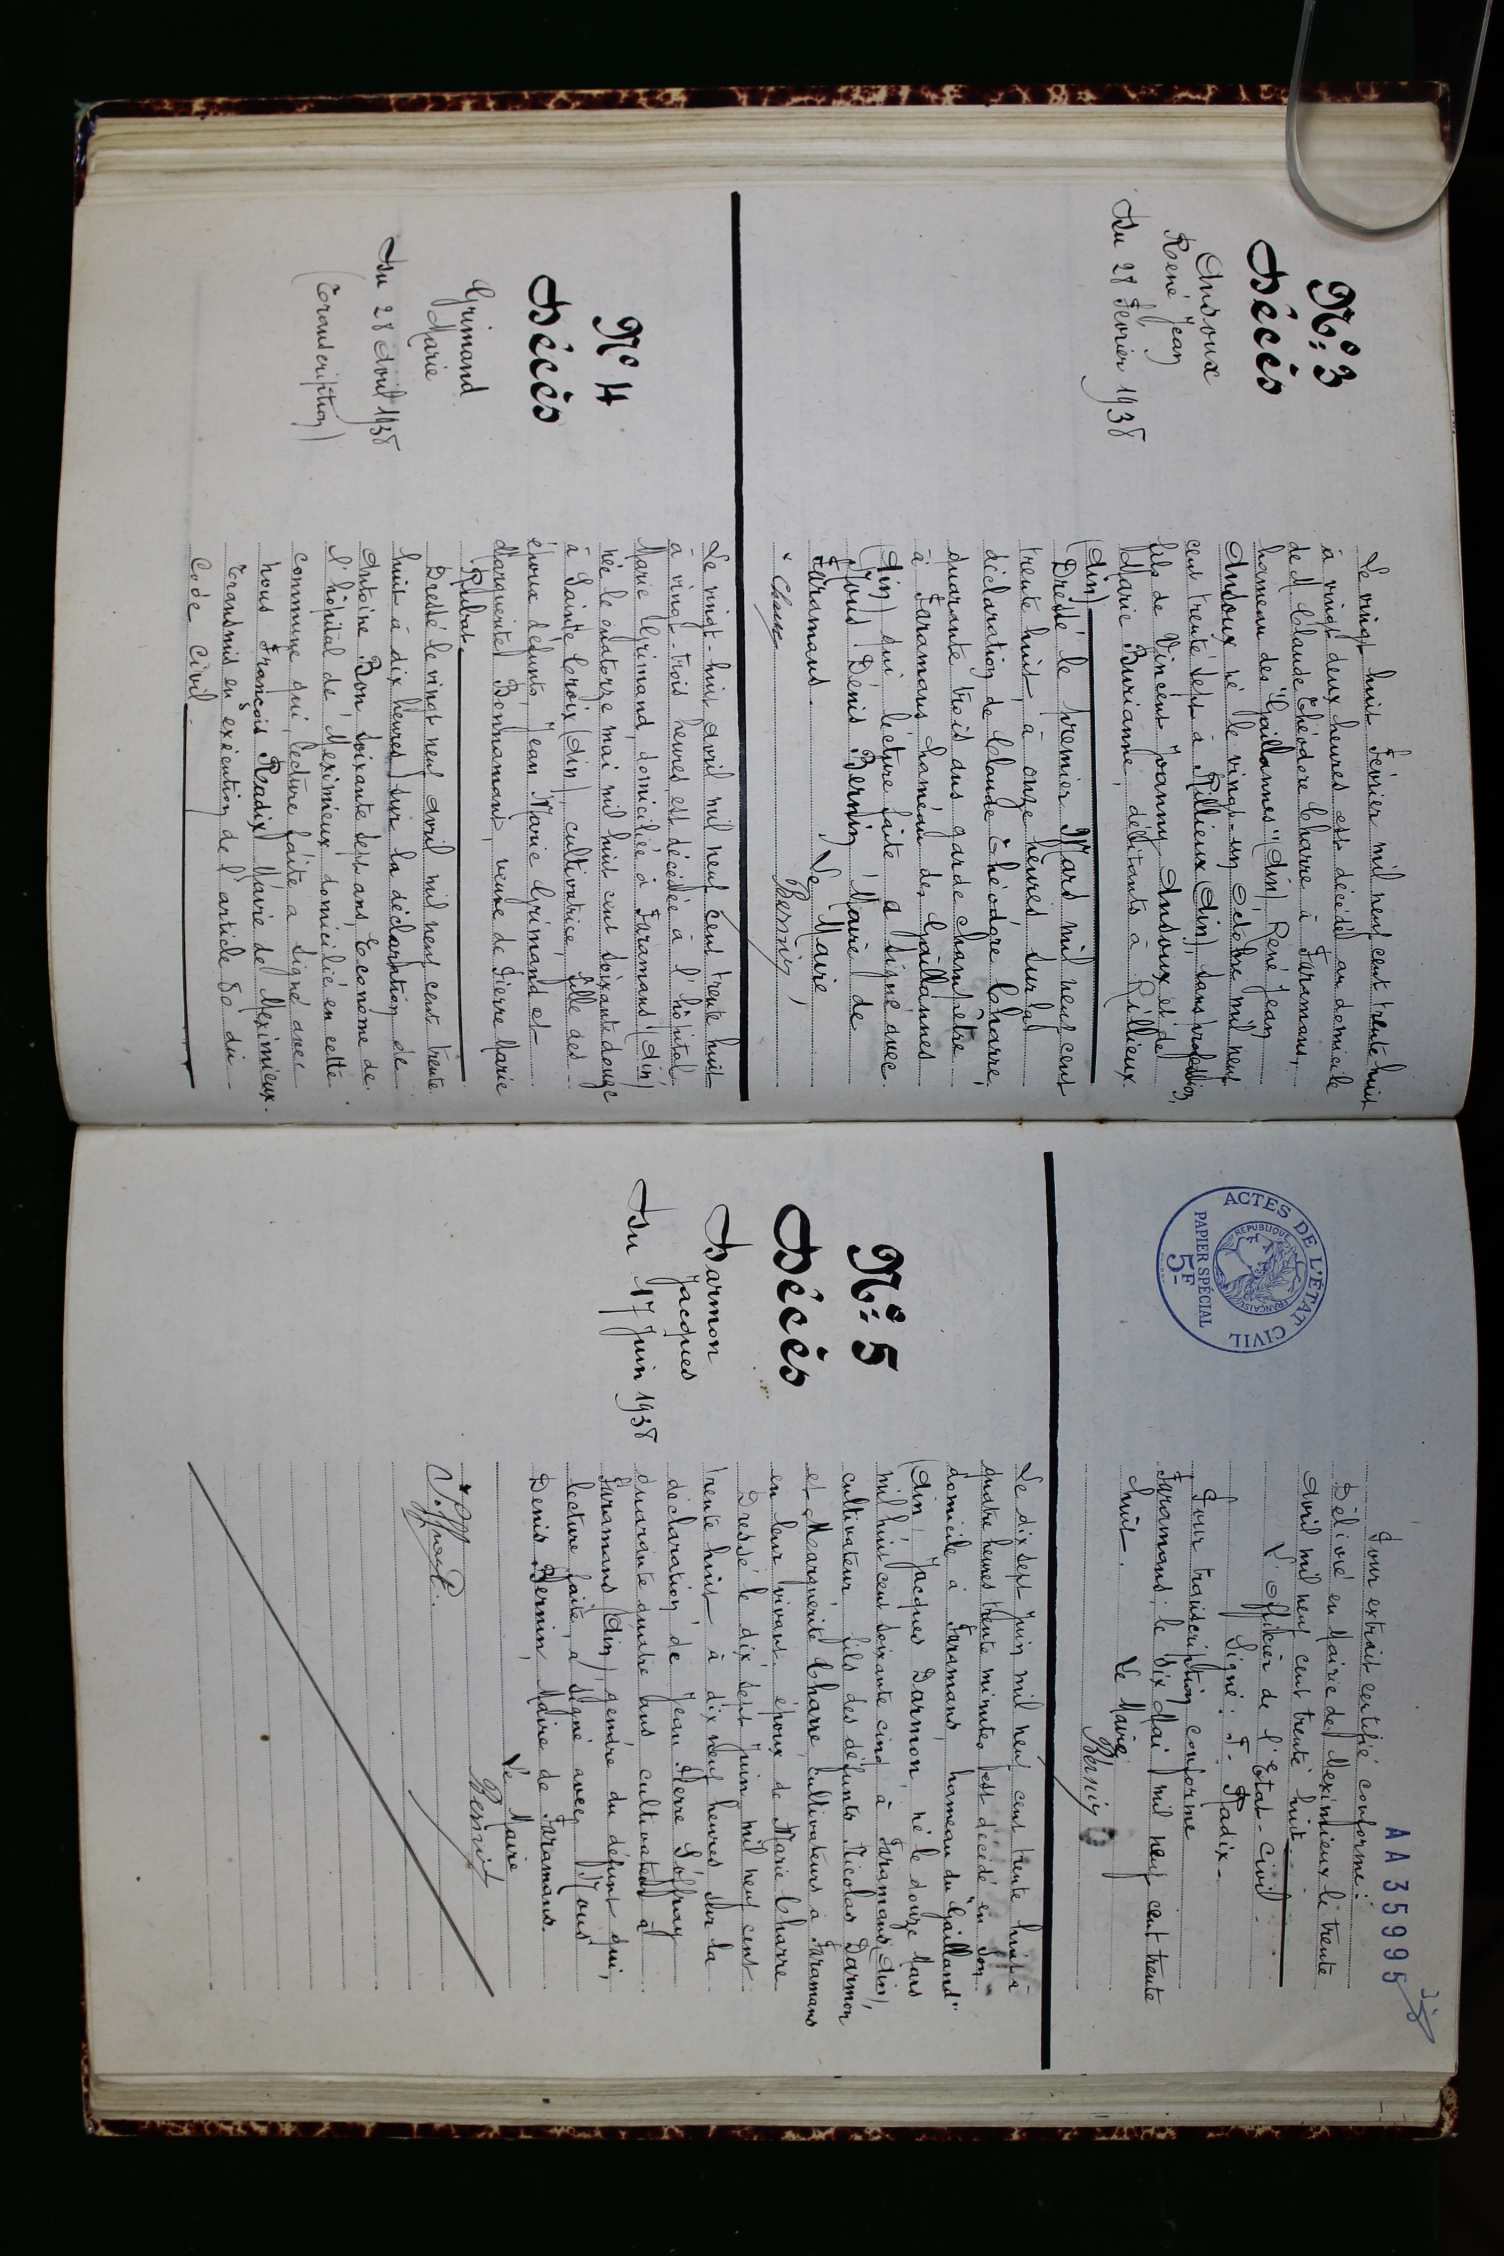 N° 3
Décès
Ansoux
René Jean
Du 28 Février 1938
Le vingt huit Février mil neuf cent trente-huit
à vingt deux heures est décédé au domicile
de M Claude Théodore Charre à Faramans,
hameau des "Gaillannes" (Ain) René Jean
Ansoux né le vingt-un Octobre mil neuf
cent trente sept à Rillieux (Ain), sans profession,
fils de Vincent Joanny Ansoux et de
Marie Burianne, débitants à Rillieux
(Ain)
Dressé le premier Mars mil neuf cent
trente huit, à onze heures sur la
déclaration de Claude Théodore Charre,
quarante trois ans garde champêtre
à Faramans hameau des Gaillannes
(Ain) qui, lecture faite a signé avec
Nous Denis Bernin Maire de
Faramans.
Le Maire,
Charre
Bernin
N° 4
Décès
Grimand
Marie
Du 28 Avril 1938
(Transcription)
Le vingt-huit avril mil neuf cent trente huit
à vingt-trois heures, est décédée à l'hôpital
Marie Grimand, domiciliée à Faramans (Ain)
née le quatorze mai mil huit cent soixante douze
à Sainte Croix (Ain), cultivatrice, fille des
époux défunts, Jean Marie Grimand et
Marguerite Bonnamant, veuve de Pierre Marie
Rubat.
Dressé le vingt neuf avril mil neuf cent trente
huit à dix heures, sur la déclaration de
Antoine Bon, soixante sept ans, Econome de
l'hôpital de Meximieux domicilié en cette
commune qui, lecture faite a signé avec
nous François Radix Maire de Meximieux.
Transmis en exécution de l'article 80 du
Code Civil.
AA35995
ACTES DE L'ÉTAT CIVIL
RÉPUBLIQUE FRANÇAISE
PAPIER SPÉCIAL
5F
Pour extrait certifié conforme:
Délivré en Mairie de Meximieux le trente
Avril mil neuf cent trente huit.
L'Officier de l'Etat-Civil.
Signé: F. Radix.
Pour transcription conforme
Faramans, le Six Mai mil neuf cent trente
huit.
Le Maire
Bernin
N° 5
Décès
Darmon
Jacques
Du 17 Juin 1938
Le dix sept Juin mil neuf cent trente huit à
quatre heures trente minutes, est décédé en son
domicile à Faramans, hameau du "Gailland"
(Ain) Jacques Darmon né le douze Mars
mil huit cent soixante cinq à Faramans (Ain),
cultivateur fils des défunts Nicolas Darmon
et Marguerite Charre, cultivateurs à Faramans
en leur vivant. époux de Marie Charre
Dressé le dix sept Juin mil neuf cent
trente huit à dix neuf heures sur la
déclaration de Jean Pierre Soffray
quarante quatre ans, cultivateur à
Faramans (Ain) gendre du défunt qui,
lecture faite, a signé avec Nous
Denis Bernin, Maire de Faramans.
Le Maire
Bernin